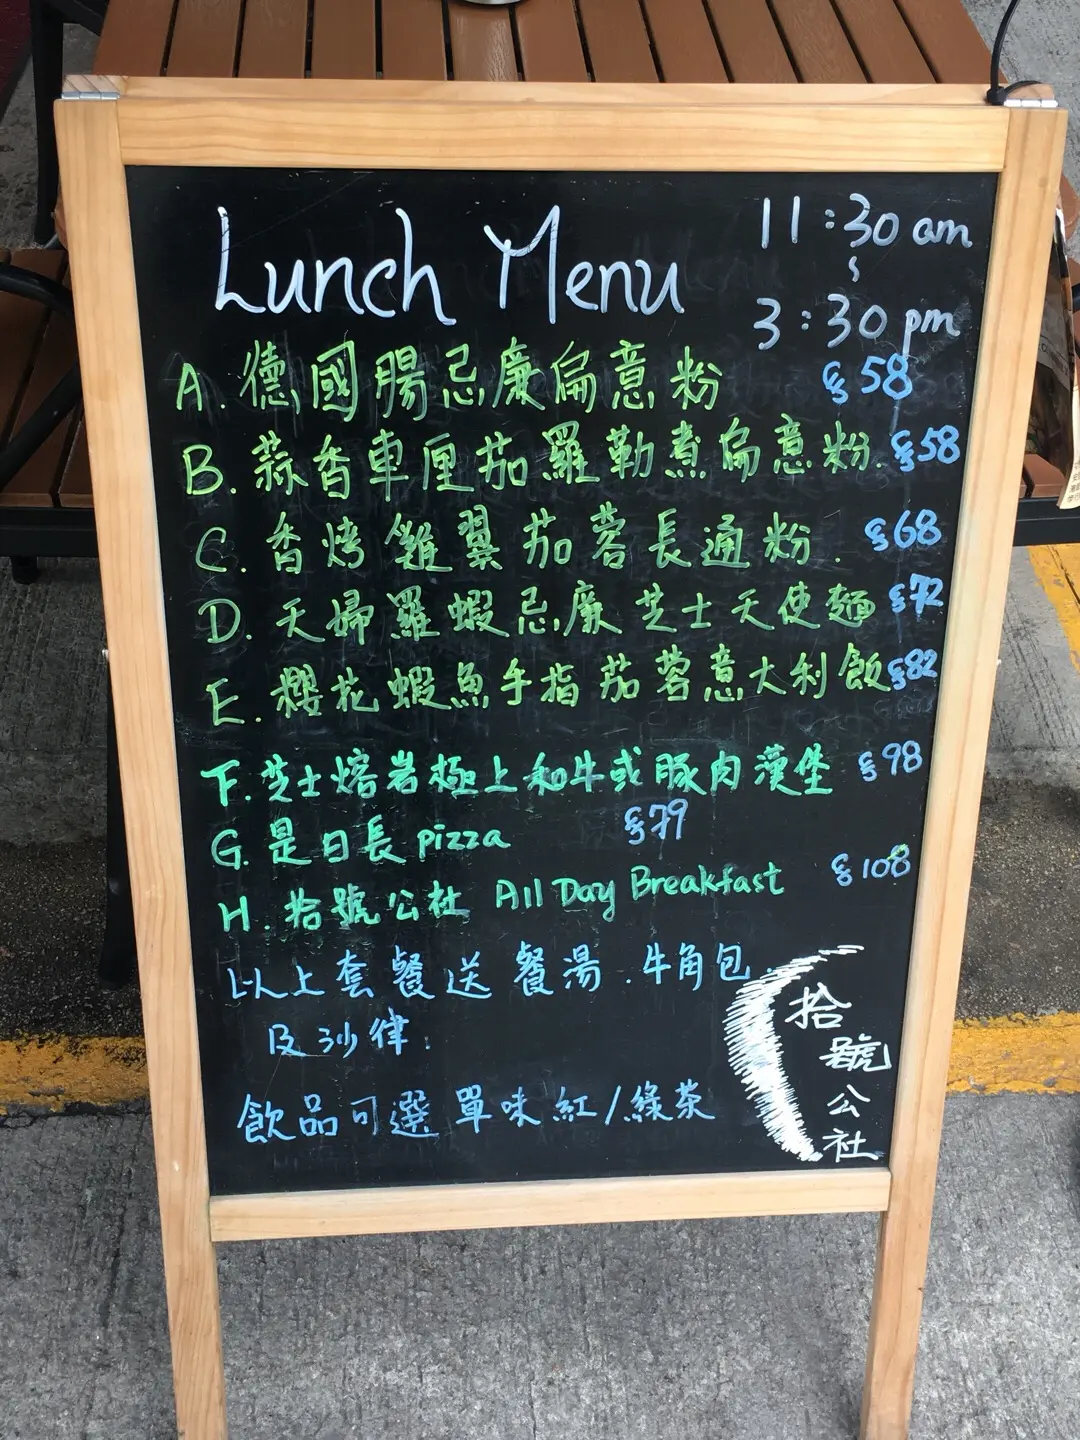 Lunch Menu
11:30 am
~
3:30 pm
A. 德國腸忌廉扁意粉 $58
B. 蒜香車厘茄羅勒煮扁意粉. $58
C. 香烤雞翼茄蓉長通粉. $68
D. 天婦羅蝦忌廉芝士天使麵 $72
E. 櫻花蝦魚手指茄蓉意大利飯 $82
F. 芝士熔岩極上和牛或豚肉漢堡 $98
G. 是日長 pizza $79
H. 拾號公社 All Day Breakfast $108
以上套餐送餐湯.牛角包
及沙律.
飲品可選單味紅/綠茶
拾號公社